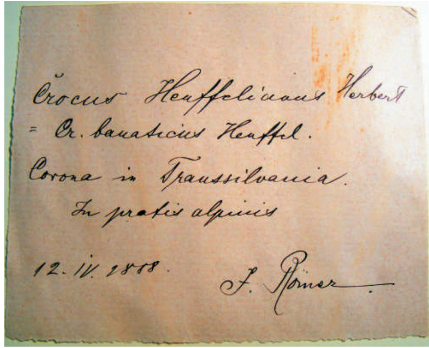 Crocus Heuffelianus Herbert
= Cr. banaticus Heuffel.
Corona in Transsilvania.
In pratis alpinis
12. IV. J. Römer